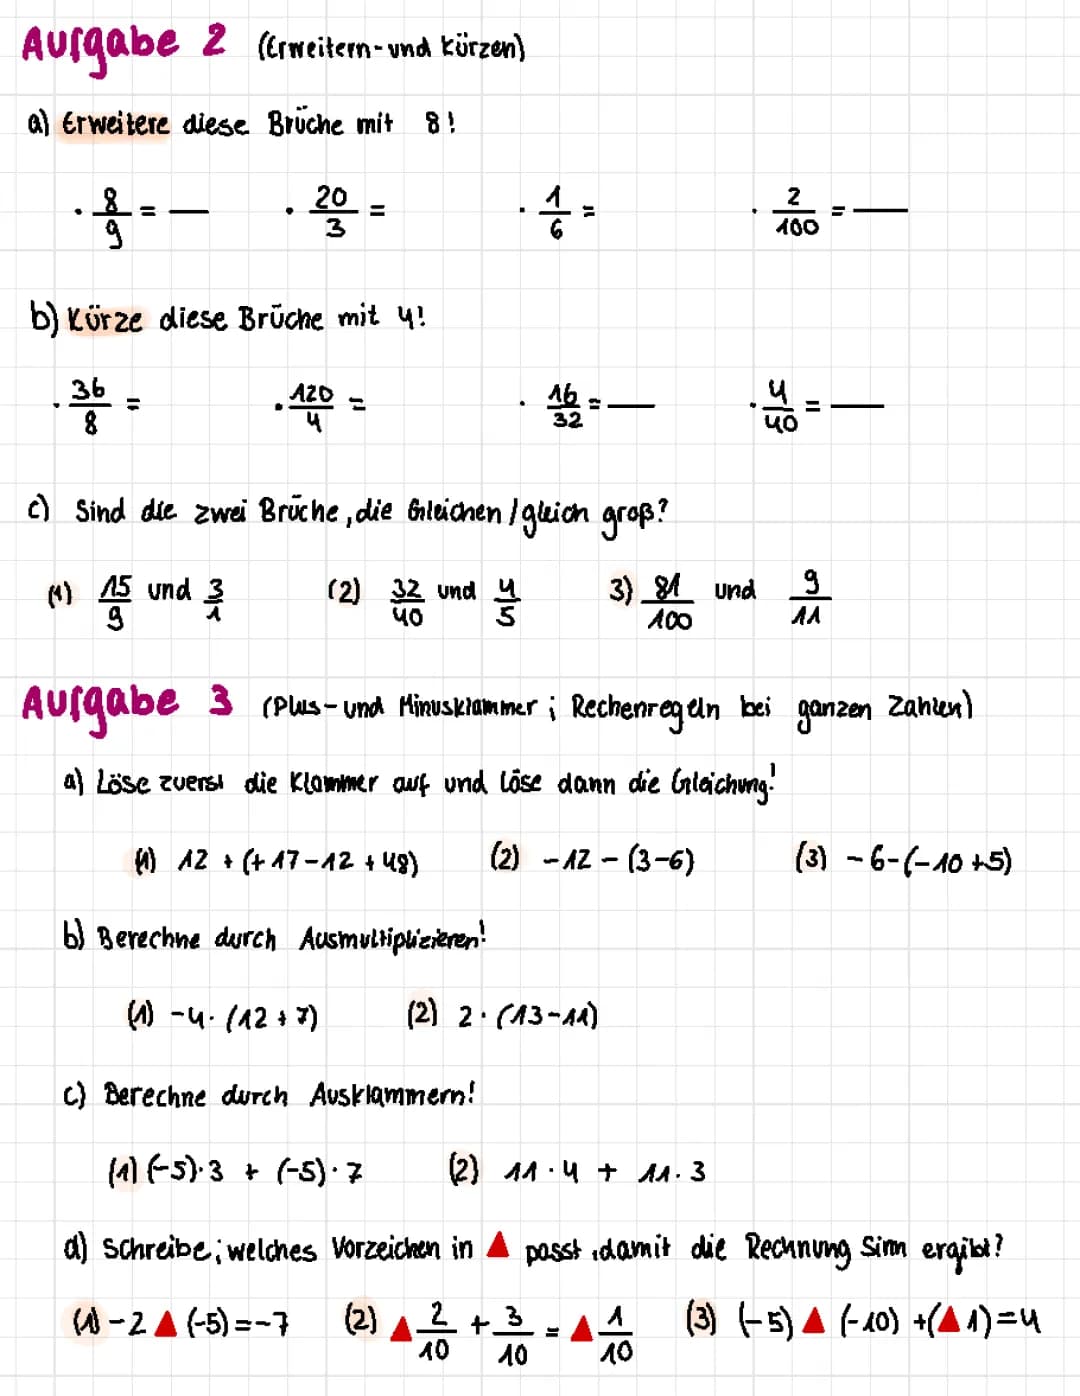 Aufgabe 2 (Erweitern- und kürzen)
a) Erweitere diese Brüche mit 8!
· 8/9 = — · 20/3 = · 1/6 = · 2/100 = —
b) Kürze diese Brüche mit 4!
· 36/8 = · 120/4 = · 16/32 = — · 4/40 = —
c) Sind die zwei Brüche, die Gleichen / gleich groß?
(1) 15/9 und 3/1 (2) 32/40 und 4/5 3) 81/100 und 9/11
Aufgabe 3 (Plus- und Minusklammer ; Rechenregeln bei ganzen Zahlen)
a) Löse zuerst die Klammer auf und löse dann die Gleichung!
(1) 12 + (+17-12 + 48) (2) -12 - (3-6) (3) -6-(-10+5)
b) Berechne durch Ausmultiplizieren!
(1) -4· (12 + 7) (2) 2 · (13-11)
c) Berechne durch Ausklammern!
(1) (-5)·3 + (-5)·7 (2) 11 · 4 + 11 · 3
d) Schreibe; welches Vorzeichen in ▲ passt, damit die Rechnung Sinn ergibt?
(1) -2 ▲ (-5) = -7 (2) ▲ 2/10 + 3/10 = ▲ 1/10 (3) (-5) ▲ (-10) + (▲ 1) = 4